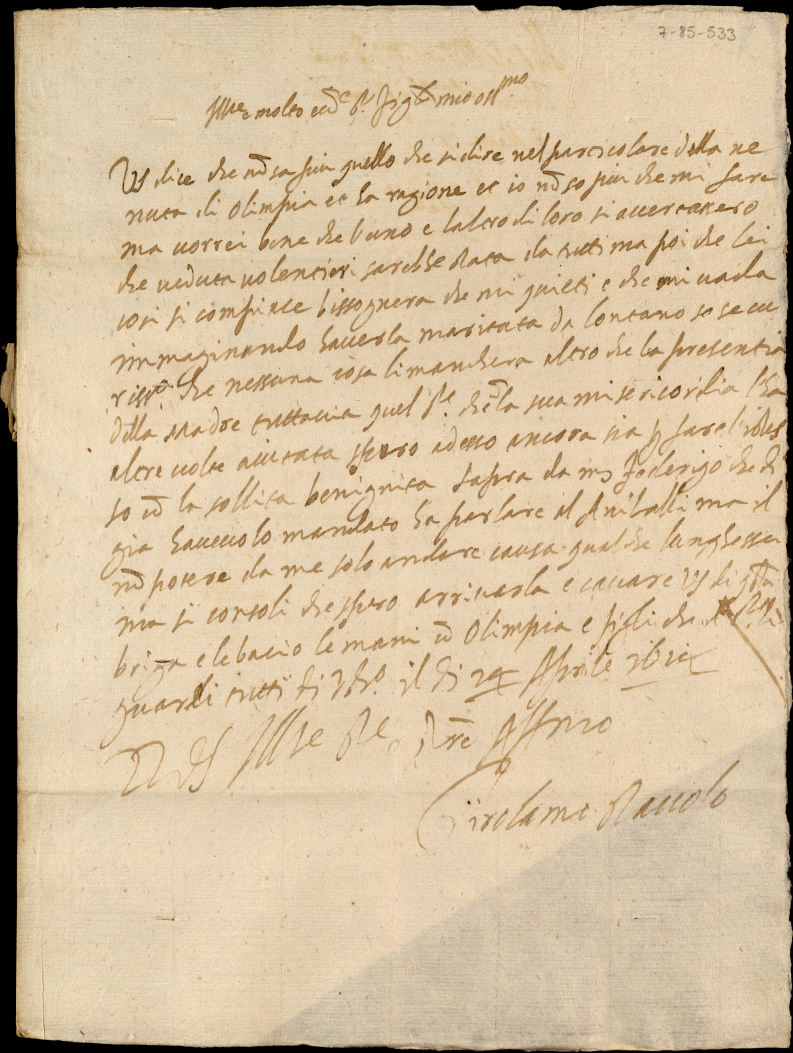 7-85-533
Ill.re e molto ecc.te S.r Sig.r mio oss.mo
VS dice che nō sa piu quello che si dire nel particolare della ve
nuta di Olimpia et ha ragione et io nō so piu che mi fare
ma vorrei bene che l'uno e l'altro di loro si accertassero
che veduta volentieri sarebbe stata da tutti ma poi che lei
cosi si compiace bissognera che mi quieti e che mi vada
immaginando haverla maritata da lontano so se cu
che nessuna cosa li manchera altro che la presentia
della Madre tuttavia quel S.re che la sua misericordia l'ha
altre volte aiutata spero adesso ancora sia p fare
so cō la sollita benignita sapra da ms Federigo che di
gia havevolo mandato ha parlare al Aniballi ma il
nō potere da me solo andare causa qualche lunghessa
ma si consoli che spero arrivarla e cavare VS di q.ta
briga e le bacio le mani cō Olimpia e figli che il S.re li
guardi tutti di il di 24 Aprile
Di VS Ill.re S.re Aff.mo
Girolamo